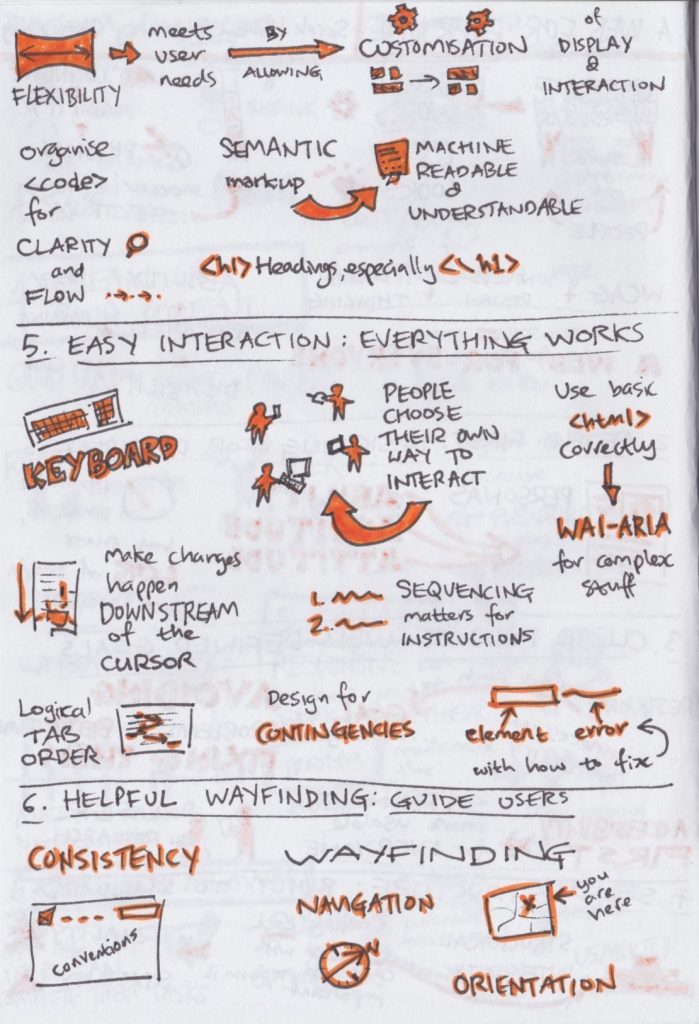 FLEXIBILITY
meets
user
needs
BY
ALLOWING
CUSTOMISATION
of
DISPLAY
&
INTERACTION
organise
<code>
for
CLARITY
and
FLOW
SEMANTIC
markup
MACHINE
READABLE
&
UNDERSTANDABLE
<h1> Headings, especially <\h1>
5. EASY INTERACTION: EVERYTHING WORKS
KEYBOARD
PEOPLE
CHOOSE
THEIR OWN
WAY TO
INTERACT
Use basic
<html>
correctly
WAI-ARIA
for complex
stuff
make changes
happen
DOWNSTREAM
of the
CURSOR
1.
2.
SEQUENCING
matters for
INSTRUCTIONS
Logical
TAB
ORDER
Design for
CONTINGENCIES
element error
with how to fix
6. HELPFUL WAYFINDING: GUIDE USERS
CONSISTENCY
conventions
WAYFINDING
NAVIGATION
N
x
you
are
here
ORIENTATION